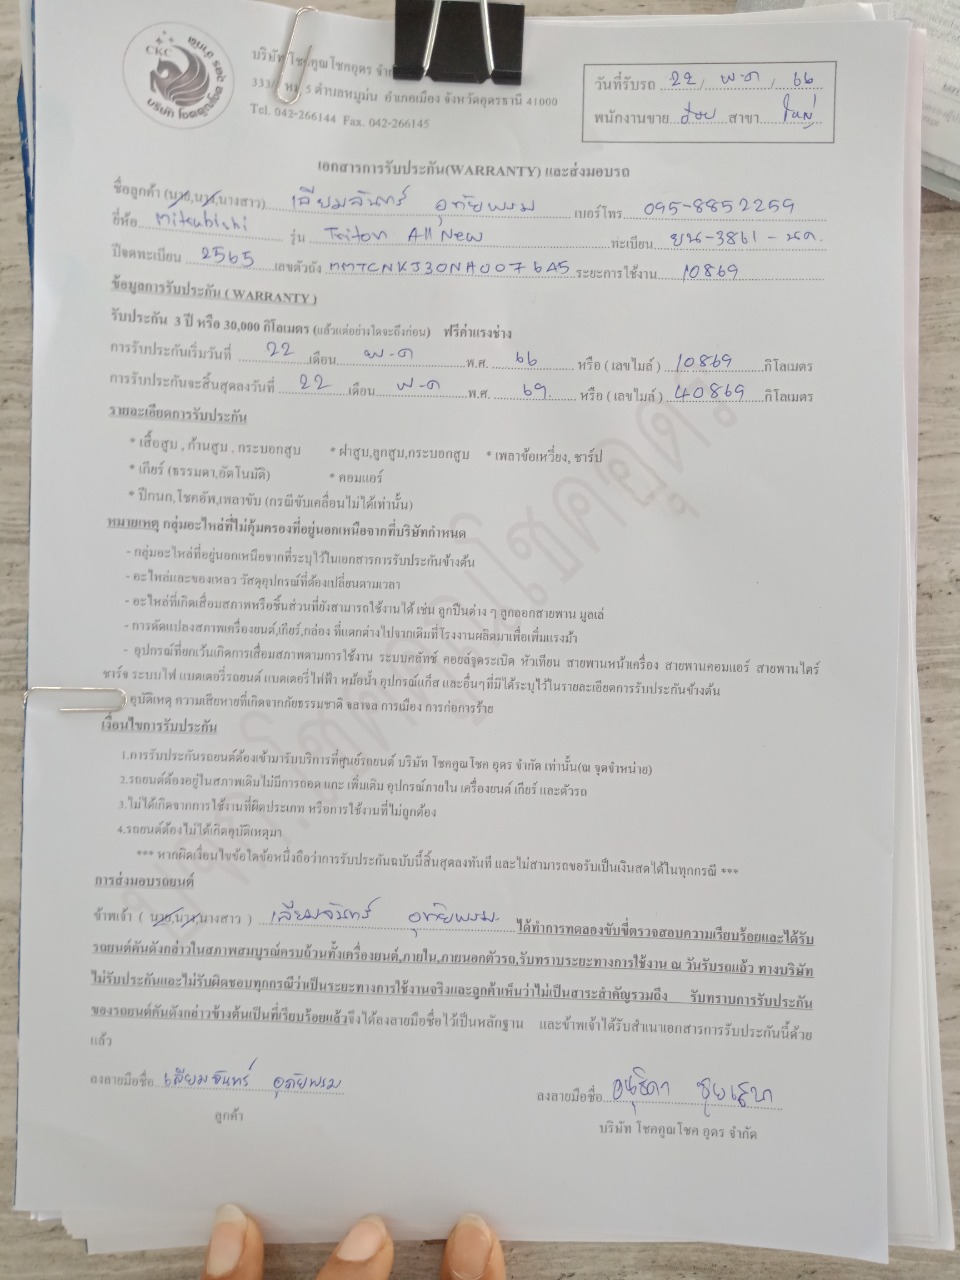 CKC
บริษัท โชคคูณโชคอุดร จำกัด
333/ หมู่ 5 ตำบลหมูม่น อำเภอเมือง จังหวัดอุดรธานี 41000
Tel. 042-266144 Fax. 042-266145
วันที่รับรถ 22 / พ.ค / 66
พนักงานขาย สาขา ใหญ่
เอกสารการรับประกัน(WARRANTY) และส่งมอบรถ
ชื่อลูกค้า (นาย,นาง,นางสาว) เลียมจันทร์ อุทัยพรม เบอร์โทร 095-8852259
ยี่ห้อ Mitsubishi รุ่น Triton All New ทะเบียน ยน-3861-นค.
ปีจดทะเบียน 2565 เลขตัวถัง MMTCNKJ30NH007645 ระยะการใช้งาน 10869
ข้อมูลการรับประกัน ( WARRANTY )
รับประกัน 3 ปี หรือ 30,000 กิโลเมตร (แล้วแต่อย่างใดจะถึงก่อน) ฟรีค่าแรงช่าง
การรับประกันเริ่มวันที่ 22 เดือน พ.ค พ.ศ. 66 หรือ ( เลขไมล์ ) 10869 กิโลเมตร
การรับประกันจะสิ้นสุดลงวันที่ 22 เดือน พ.ค พ.ศ. 69 หรือ ( เลขไมล์ ) 40869 กิโลเมตร
รายละเอียดการรับประกัน
* เสื้อสูบ , ก้านสูบ , กระบอกสูบ * ฝาสูบ,ลูกสูบ,กระบอกสูบ * เพลาข้อเหวี่ยง, ชาร์ป
* เกียร์ (ธรรมดา,อัตโนมัติ) * คอมแอร์
* ปีกนก,โชคอัพ,เพลาขับ (กรณีขับเคลื่อนไม่ได้เท่านั้น)
หมายเหตุ กลุ่มอะไหล่ที่ไม่คุ้มครองที่อยู่นอกเหนือจากที่บริษัทกำหนด
- กลุ่มอะไหล่ที่อยู่นอกเหนือจากที่ระบุไว้ในเอกสารการรับประกันข้างต้น
- อะไหล่และของเหลว วัสดุอุปกรณ์ที่ต้องเปลี่ยนตามเวลา
- อะไหล่ที่เกิดเสื่อมสภาพหรือชิ้นส่วนที่ยังสามารถใช้งานได้ เช่น ลูกปืนต่าง ๆ ลูกลอกสายพาน มูลเล่
- การดัดแปลงสภาพเครื่องยนต์,เกียร์,กล่อง ที่แตกต่างไปจากเดิมที่โรงงานผลิตมาเพื่อเพิ่มแรงม้า
- อุปกรณ์ที่ยกเว้นเกิดการเสื่อมสภาพตามการใช้งาน ระบบคลัทช์ คอยล์จุดระเบิด หัวเทียน สายพานหน้าเครื่อง สายพานคอมแอร์ สายพานไดร์
ชาร์จ ระบบไฟ แบตเตอรี่รถยนต์ แบตเตอรี่ไฟฟ้า หม้อน้ำ อุปกรณ์แก๊ส และอื่นๆที่มิได้ระบุไว้ในรายละเอียดการรับประกันข้างต้น
อุบัติเหตุ ความเสียหายที่เกิดจากภัยธรรมชาติ จลาจล การเมือง การก่อการร้าย
เงื่อนไขการรับประกัน
1.การรับประกันรถยนต์ต้องเข้ามารับบริการที่ศูนย์รถยนต์ บริษัท โชคคูณโชค อุดร จำกัด เท่านั้น(ณ จุดจำหน่าย)
2.รถยนต์ต้องอยู่ในสภาพเดิมไม่มีการถอด แกะ เพิ่มเติม อุปกรณ์ภายใน เครื่องยนต์ เกียร์ และตัวรถ
3.ไม่ได้เกิดจากการใช้งานที่ผิดประเภท หรือการใช้งานที่ไม่ถูกต้อง
4.รถยนต์ต้องไม่ได้เกิดอุบัติเหตุมา
*** หากผิดเงื่อนไขข้อใดข้อหนึ่งถือว่าการรับประกันฉบับนี้สิ้นสุดลงทันที และไม่สามารถขอรับเป็นเงินสดได้ในทุกกรณี ***
การส่งมอบรถยนต์
ข้าพเจ้า ( นาย,นาง,นางสาว ) เลียมจันทร์ อุทัยพรม ได้ทำการทดลองขับขี่ตรวจสอบความเรียบร้อยและได้รับ
รถยนต์คันดังกล่าวในสภาพสมบูรณ์ครบถ้วนทั้งเครื่องยนต์,ภายใน,ภายนอกตัวรถ,รับทราบระยะทางการใช้งาน ณ วันรับรถแล้ว ทางบริษัท
ไม่รับประกันและไม่รับผิดชอบทุกกรณีว่าเป็นระยะทางการใช้งานจริงและลูกค้าเห็นว่าไม่เป็นสาระสำคัญรวมถึง รับทราบการรับประกัน
ของรถยนต์คันดังกล่าวข้างต้นเป็นที่เรียบร้อยแล้วจึงได้ลงลายมือชื่อไว้เป็นหลักฐาน และข้าพเจ้าได้รับสำเนาเอกสารการรับประกันนี้ด้วย
แล้ว
ลงลายมือชื่อ เลียมจันทร์ อุทัยพรม ลงลายมือชื่อ
ลูกค้า บริษัท โชคคูณโชค อุดร จำกัด